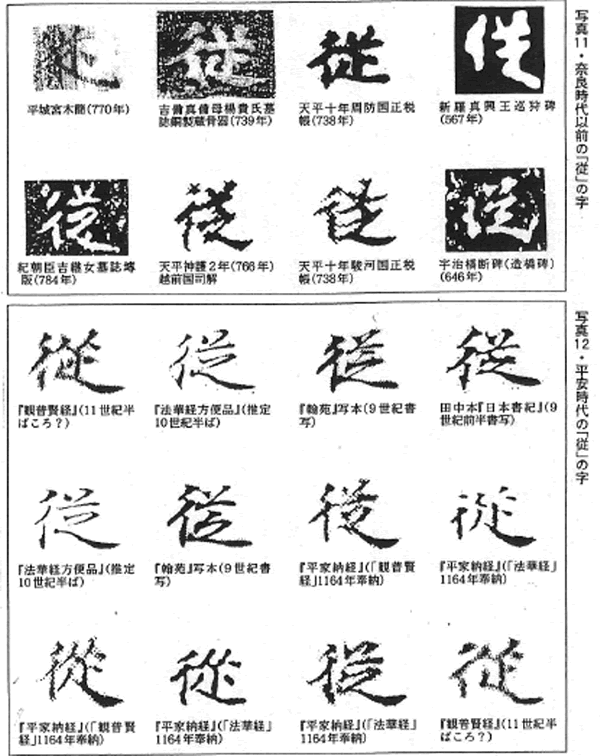 写真11・奈良時代以前の「従」の字
平城宮木簡(770年)
吉備真備母楊貴氏墓
誌銅製蔵骨器(739年)
天平十年周防国正税
帳(738年)
新羅真興王巡狩碑
(567年)
紀朝臣吉継女墓誌塼
版(784年)
天平神護2年(766年)
越前国司解
天平十年駿河国正税
帳(738年)
宇治橋断碑(造橋碑)
(646年)
写真12・平安時代の「従」の字
『観普賢経』(11世紀半
ばころ?)
『法華経方便品』(推定
10世紀半ば)
『翰苑』写本(9世紀書
写)
田中本『日本書紀』(9
世紀前半書写)
『法華経方便品』(推定
10世紀半ば)
『翰苑』写本(9世紀書
写)
『平家納経』(「観普賢
経」1164年奉納)
『平家納経』(「法華経」
1164年奉納)
『平家納経』(「観普賢
経」1164年奉納)
『平家納経』(「法華経」
1164年奉納)
『平家納経』(「法華経」
1164年奉納)
『観普賢経』(11世紀半
ばころ?)